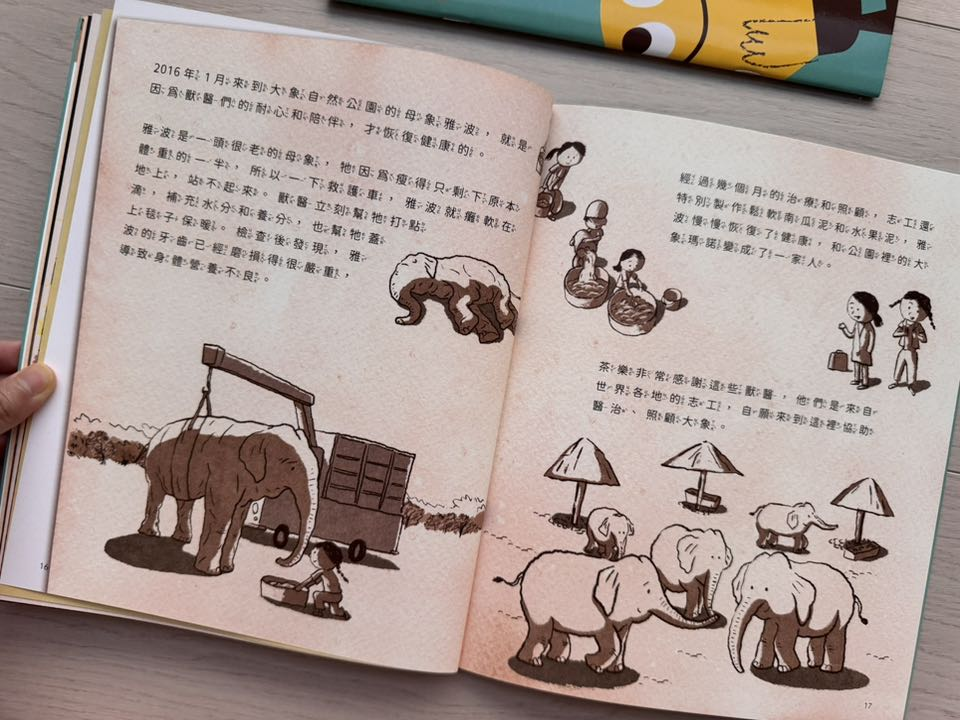 2016年1月來到大象自然公園的母象雅波，就是
因為獸醫們的耐心和陪伴，才恢復健康的。
雅波是一頭很老的母象，牠因為瘦得只剩下原本
體重的一半，所以一下救護車，雅波就癱軟在
地上，站不起來。獸醫立刻幫牠打點
滴，補充水分和養分，也幫牠蓋
上毯子保暖。檢查後發現，雅
波的牙齒已經磨損得很嚴重，
導致身體營養不良。
16
經過幾個月的治療和照顧，志工還
特別製作鬆軟南瓜泥和水果泥，雅
波慢慢恢復了健康，和公園裡的大
象瑪諾變成了一家人。
茶樂非常感謝這些獸醫，他們是來自
世界各地的志工，自願來到這裡協助
醫治、照顧大象。
17